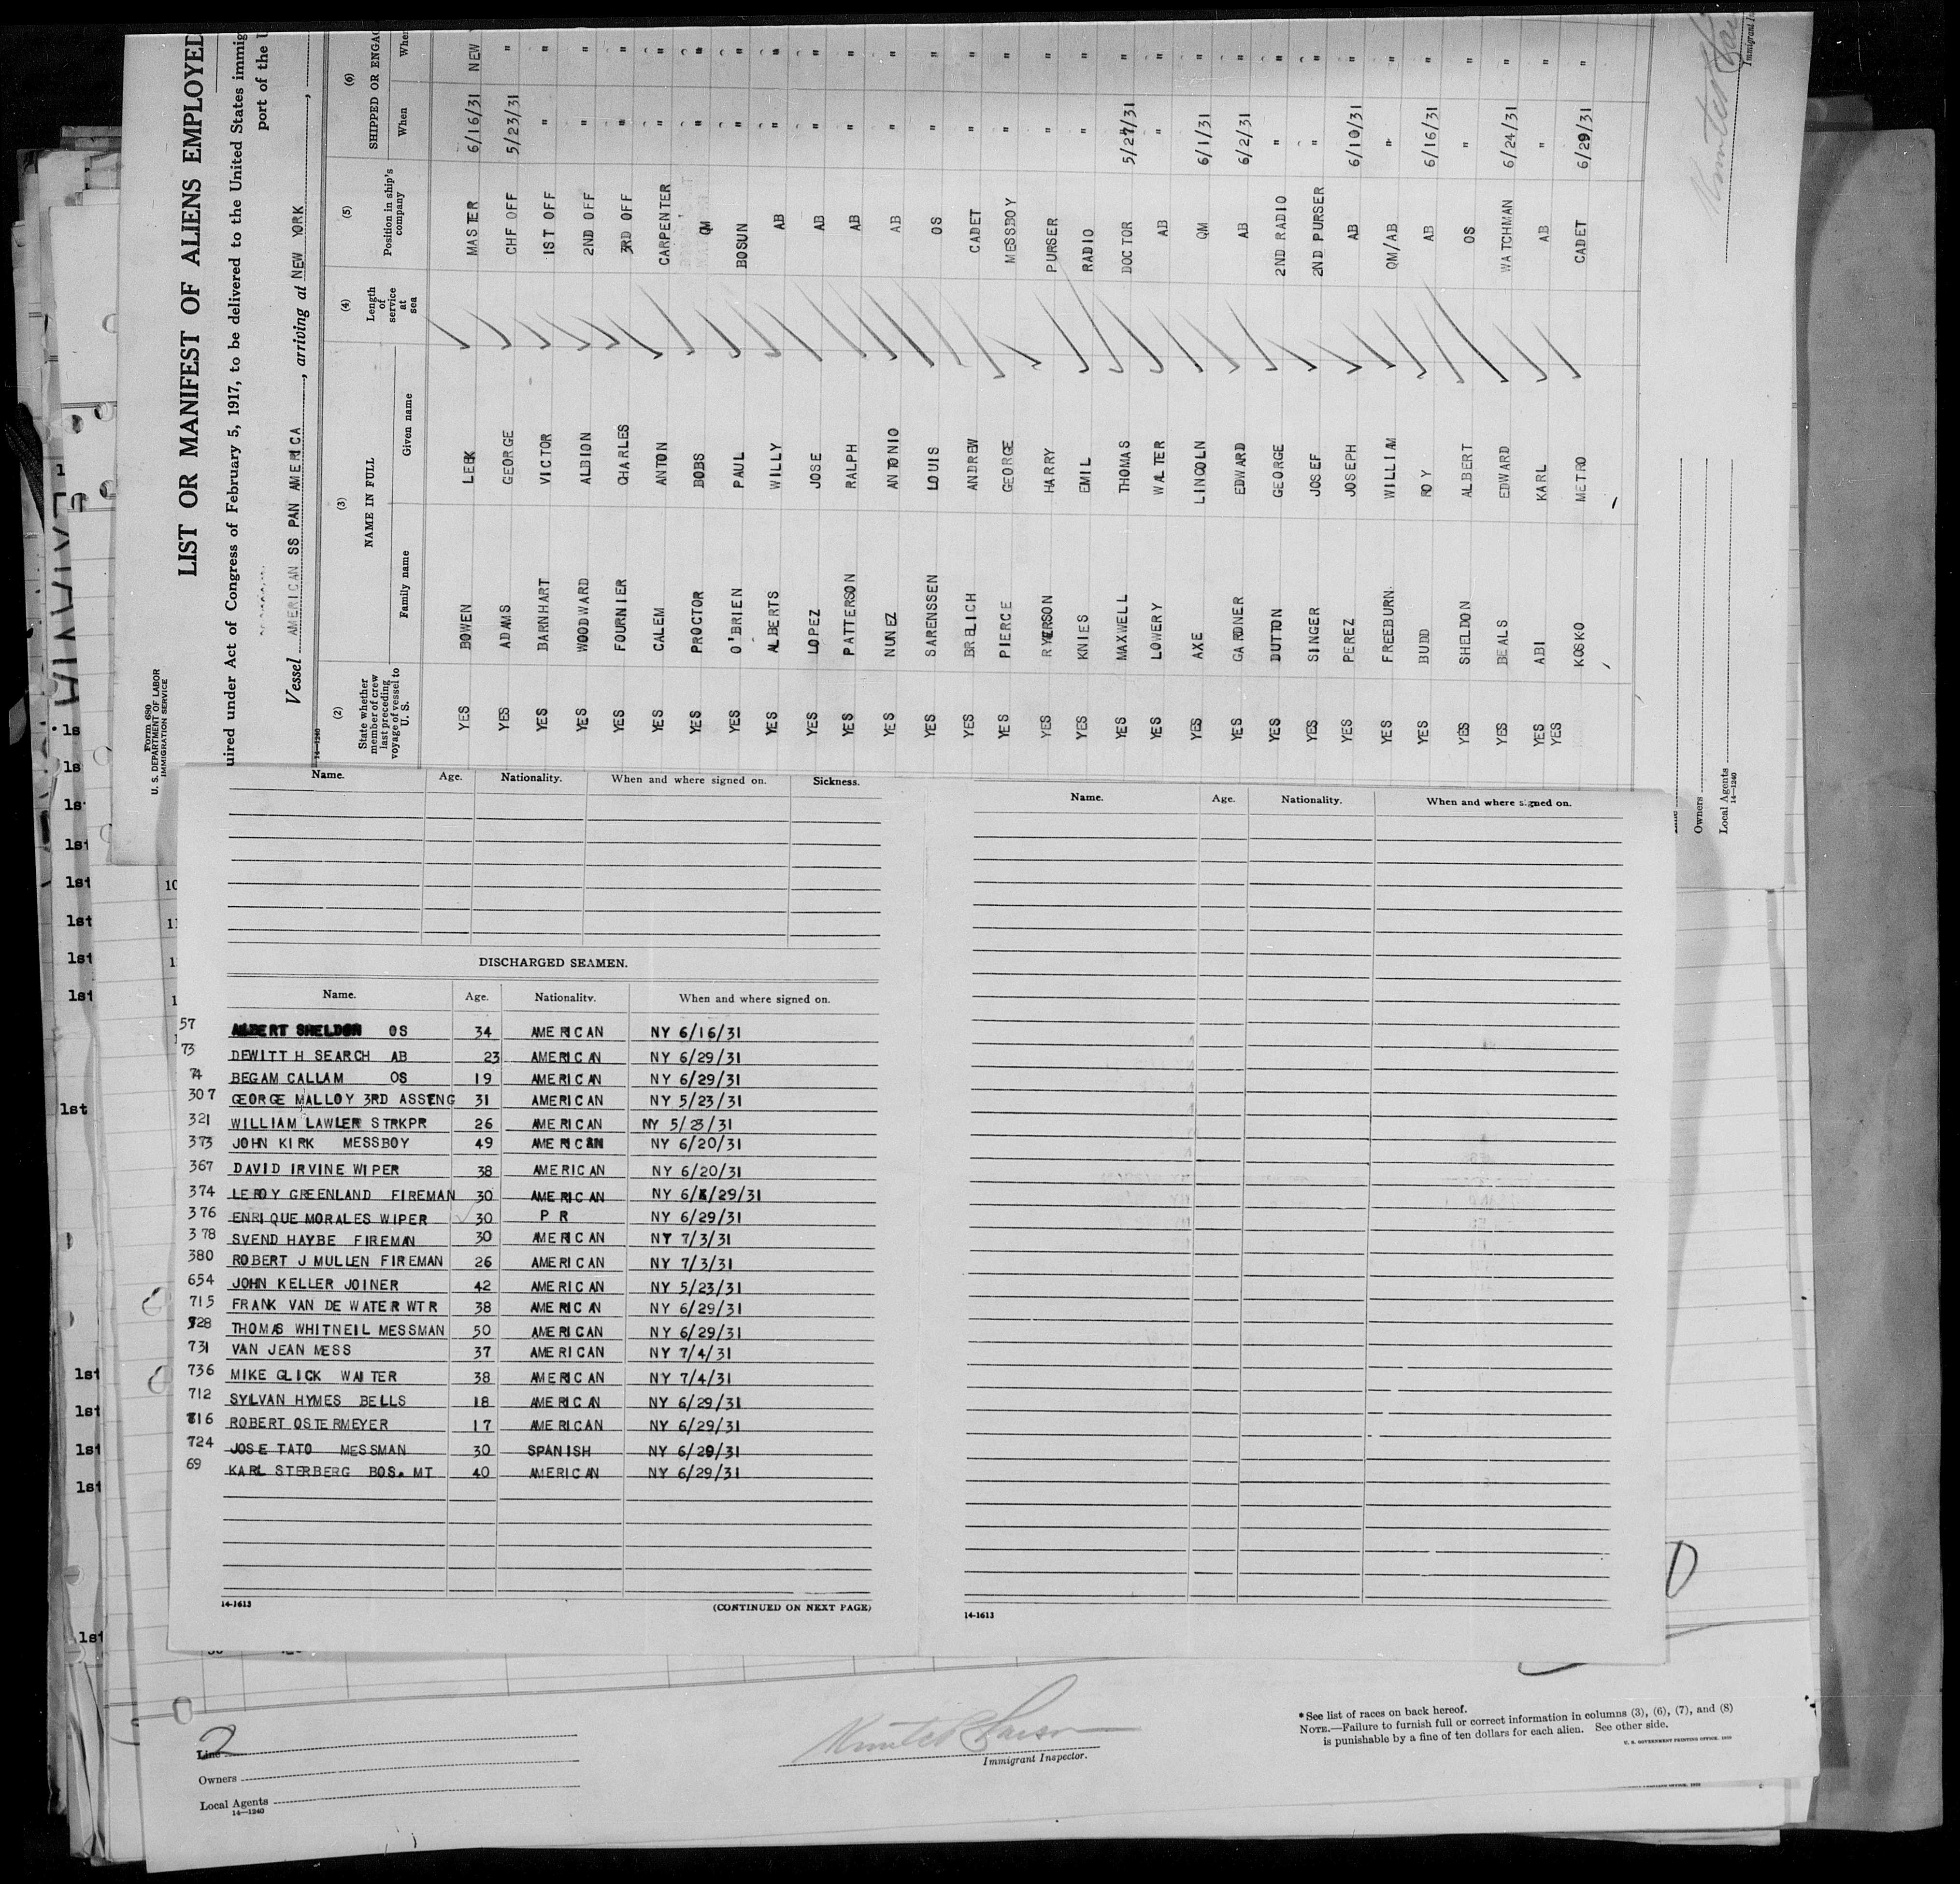 Form 680
U. S. DEPARTMENT OF LABOR
IMMIGRATION SERVICE
LIST OR MANIFEST OF ALIENS EMPLOYED
uired under Act of Congress of February 5, 1917, to be delivered to the United States immig
port of the U
Vessel AMERICAN SS PAN AMERICA, arriving at NEW YORK
14—1240
(2) (3) (4) (5) (6)
State whether member of crew last preceding voyage of vessel to U. S. NAME IN FULL Length of service at sea Position in ship's company SHIPPED OR ENGAG
Family name Given name When Wher
YES BOWEN LEEK MASTER 6/16/31 NEW
YES ADAMS GEORGE CHF OFF 5/23/31 "
YES BARNHART VICTOR 1ST OFF " "
YES WOODWARD ALBION 2ND OFF " "
YES FOURNIER CHARLES 3RD OFF " "
YES CALEM ANTON CARPENTER " "
YES PROCTOR BOBS QM " "
YES O'BRIEN PAUL BOSUN " "
YES ALBERTS WILLY AB " "
YES LOPEZ JOSE AB " "
YES PATTERSON RALPH AB " "
YES NUNEZ ANTONIO AB " "
YES SARENSSEN LOUIS OS " "
YES BRELICH ANDREW CADET " "
YES PIERCE GEORGE MESSBOY " "
YES RYERSON HARRY PURSER " "
YES KNIES EMIL RADIO " "
YES MAXWELL THOMAS DOCTOR 5/27/31 "
YES LOWERY WALTER AB " "
YES AXE LINCOLN QM 6/1/31 "
YES GARDNER EDWARD AB 6/2/31 "
YES DUTTON GEORGE 2ND RADIO " "
YES SINGER JOSEF 2ND PURSER " "
YES PEREZ JOSEPH AB 6/10/31 "
YES FREEBURN WILLIAM QM/AB " "
YES BUDD ROY AB 6/16/31 "
YES SHELDON ALBERT OS " "
YES BEALS EDWARD WATCHMAN 6/24/31 "
YES ABI KARL AB " "
YES KOSKO METRO CADET 6/29/31 "
Owners
Local Agents
14—1240
Immigrant In
Name. Age. Nationality. When and where signed on. Sickness.
DISCHARGED SEAMEN.
Name. Age. Nationality. When and where signed on.
57 ALBERT SHELDON OS 34 AMERICAN NY 6/16/31
73 DEWITT H SEARCH AB 23 AMERICAN NY 6/29/31
74 BEGAM CALLAM OS 19 AMERICAN NY 6/29/31
307 GEORGE MALLOY 3RD ASSENG 31 AMERICAN NY 5/23/31
321 WILLIAM LAWLER STRKPR 26 AMERICAN NY 5/23/31
373 JOHN KIRK MESSBOY 49 AMERICAN NY 6/20/31
367 DAVID IRVINE WIPER 38 AMERICAN NY 6/20/31
374 LEROY GREENLAND FIREMAN 30 AMERICAN NY 6/29/31
376 ENRIQUE MORALES WIPER 30 P R NY 6/29/31
378 SVEND HAYBE FIREMAN 30 AMERICAN NY 7/3/31
380 ROBERT J MULLEN FIREMAN 26 AMERICAN NY 7/3/31
654 JOHN KELLER JOINER 42 AMERICAN NY 5/23/31
715 FRANK VAN DE WATER WTR 38 AMERICAN NY 6/29/31
728 THOMAS WHITNEIL MESSMAN 50 AMERICAN NY 6/29/31
731 VAN JEAN MESS 37 AMERICAN NY 7/4/31
736 MIKE GLICK WAITER 38 AMERICAN NY 7/4/31
712 SYLVAN HYMES BELLS 18 AMERICAN NY 6/29/31
816 ROBERT OSTERMEYER 17 AMERICAN NY 6/29/31
724 JOSE TATO MESSMAN 30 SPANISH NY 6/29/31
69 KARL STERBERG BOS. MT 40 AMERICAN NY 6/29/31
14-1613
(CONTINUED ON NEXT PAGE)
Name. Age. Nationality. When and where signed on.
14-1613
2
Line
Owners
Local Agents
14—1240
Immigrant Inspector.
*See list of races on back hereof.
NOTE.—Failure to furnish full or correct information in columns (3), (6), (7), and (8)
is punishable by a fine of ten dollars for each alien. See other side.
U. S. GOVERNMENT PRINTING OFFICE